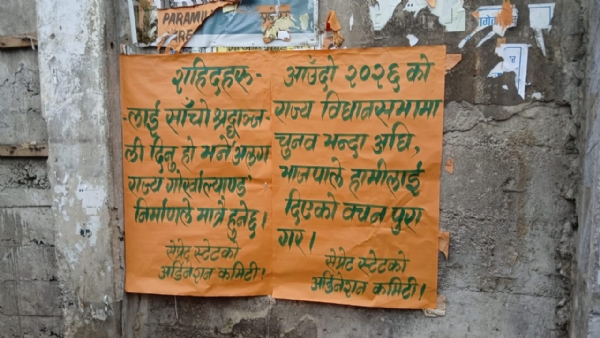 PARAMU
शहिदहरू-
-लाई साँचो श्रद्धाञ्ज-
ली दिनु हो भने अलग
राज्य गोर्खाल्याण्ड
निर्माणले मात्रै हुनेछ।
सेप्रेट स्टेटको
अर्डिनेशन कमिटी!
आउँदो २०२६ को
राज्य विधानसभामा
चुनाव भन्दा अघि,
भाजपाले हामीलाई
दिएको वचन पुरा
गर।
सेप्रेट स्टेटको
अर्डिनेशन कमिटी!